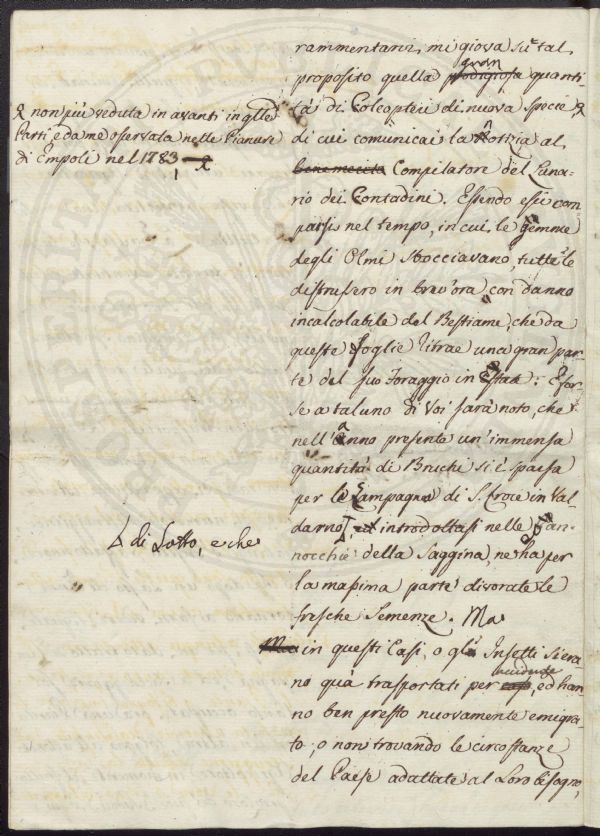 rammentarvi, mi giova su tal
proposito quella prodigiosa gran quanti-
tà di Coleopteri di nuova specie,
non più veduta in avanti in qlle
Parti, e da me osservata nelle Pianure
di Empoli nel 1783,
di cui comunicai la Notizia al
benemerito Compilatore del Luna-
rio dei Contadini. Essendo essi com-
parsi nel tempo, in cui le Gemme
degli Olmi sbocciavano, tutte le
distrussero in brev'ora con danno
incalcolabile del Bestiame, che da
queste foglie ritrae una gran par-
te del suo foraggio in Estate: E for-
se a taluno di Voi sarà noto, che
nell'Anno presente un'immensa
quantità di Bruchi si è sparsa
per le Campagne di S. Croce in Val-
darno
di Sotto, e che
introdottasi nelle Pan-
nocchie della Saggina, ne ha per
la massima parte divorate le
fresche Semenze. Ma
Ma in questi Casi, o gl' Insetti si era-
no quà trasportati per caso accidente, ed han-
no ben presto nuovamente emigra-
to, o non trovando le circostanze
del Paese adattate al Loro bisogno,